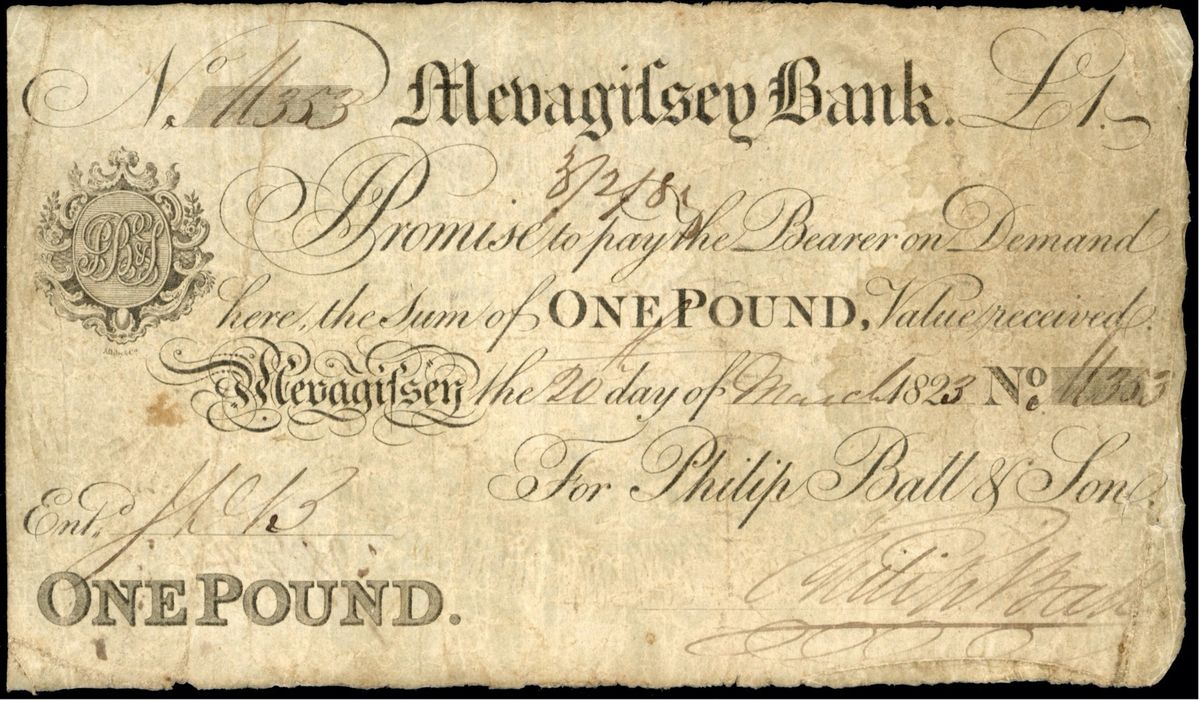 No. 11353 Mevagiſsey Bank. £1.
Promise to pay the Bearer on Demand
here, the Sum of ONE POUND, Value received.
Mevagiſsey the 20 day of March 1823 No. 11353
For Philip Ball & Son.
Entd.
ONE POUND.
Philip Ball